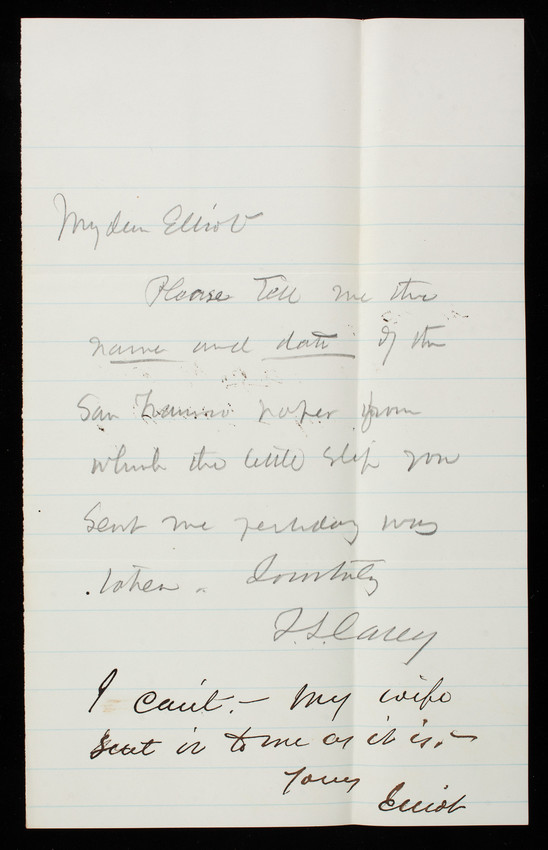 My dear Elliot
Please tell me the
name and date of the
San Francisco paper from
which the little slip you
sent me yesterday was
taken. Yours truly
T.L. Casey
I can't. - My wife
sent it to me as it is. -
Yours
Elliot